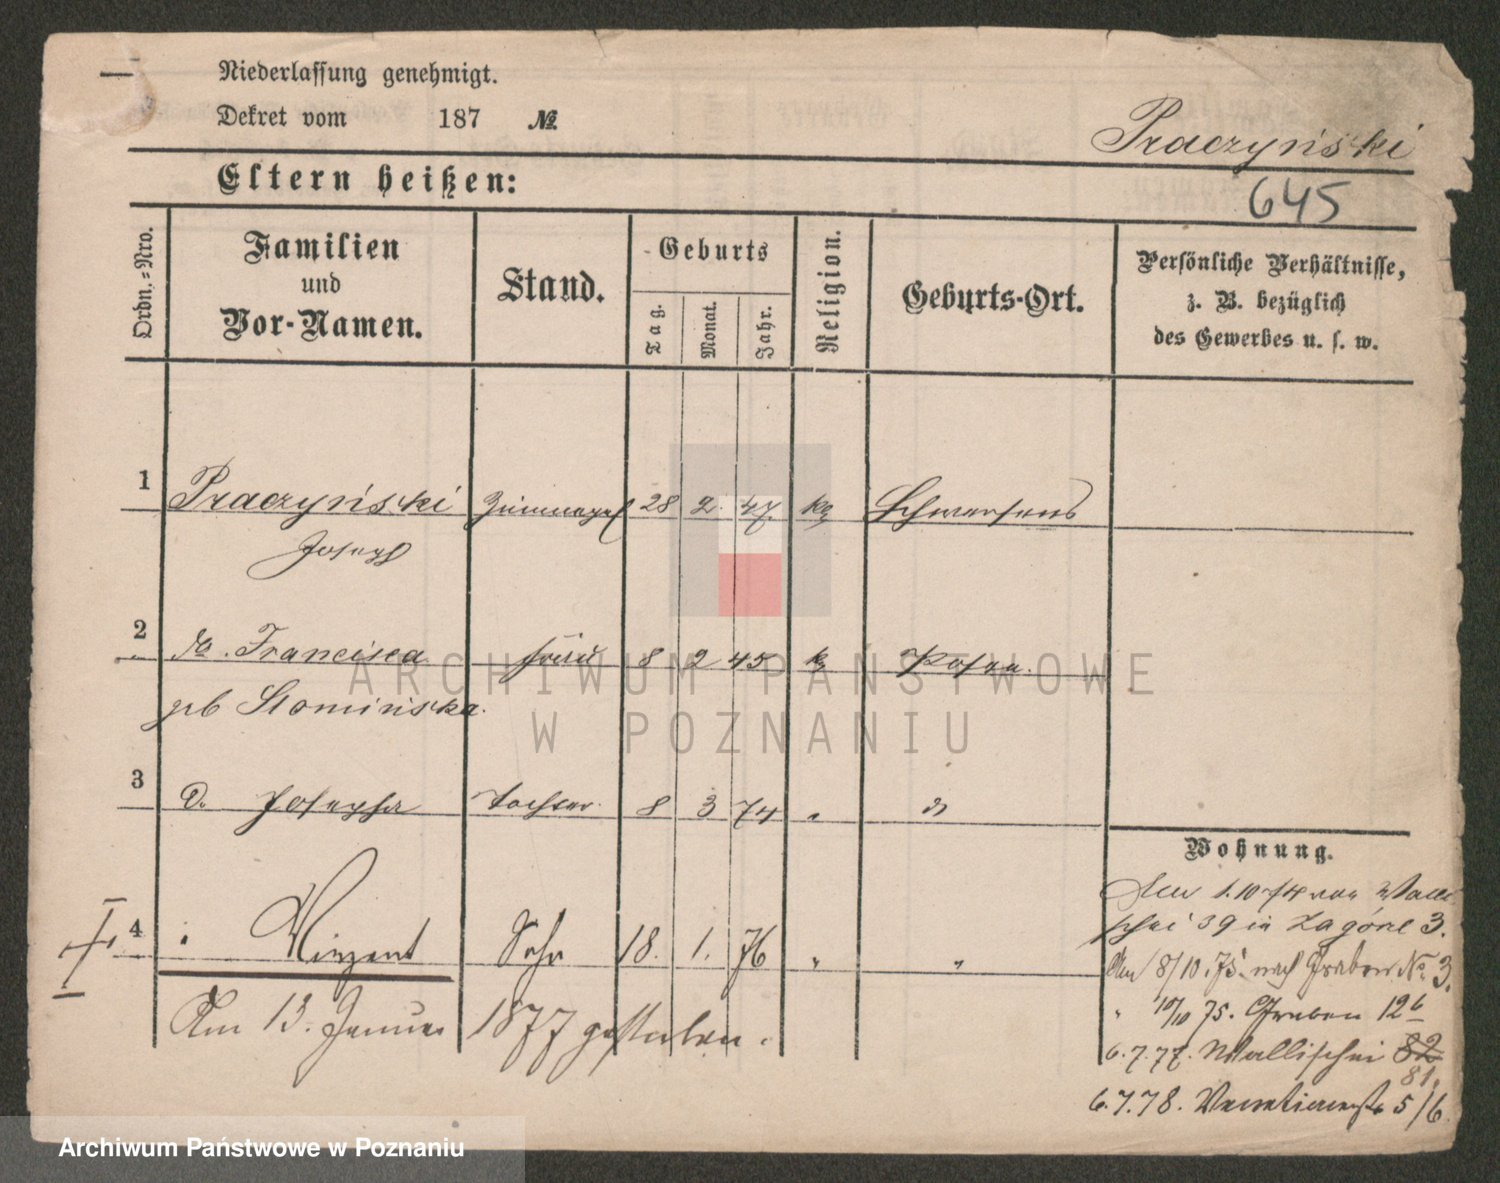 Niederlassung genehmigt.
Dekret vom 187 №
Praczyński
645
Eltern heißen:
Ordn.-Nro.
Familien
und
Vor-Namen.
Stand.
Geburts
Tag.
Monat.
Jahr.
Religion.
Geburts-Ort.
Persönliche Verhältnisse,
z. B. bezüglich
des Gewerbes u. s. w.
1 Praczyński 28 2. 47. Schwersenz
Joseph
2 do. Francisca Frau 8 2 45 k Posen.
gb Słomińska.
3 Do Josepha Tochter 8 3 74 "
Wohnung.
4 " Vinzent Sohn 18. 1. 76 " "
Am 13. Januar 1877 gestorben.
Den 1.10 74 von Walli
schei 39 in Zagórze 3.
Am 8/10. 75. nach Graben No. 3.
" 10/10 75. Graben 12b
6.7.77. Wallischei 82
81.
6.7.78. Venetianerstr 5/6.
ARCHIWUM PAŃSTWOWE
W POZNANIU
Archiwum Państwowe w Poznaniu